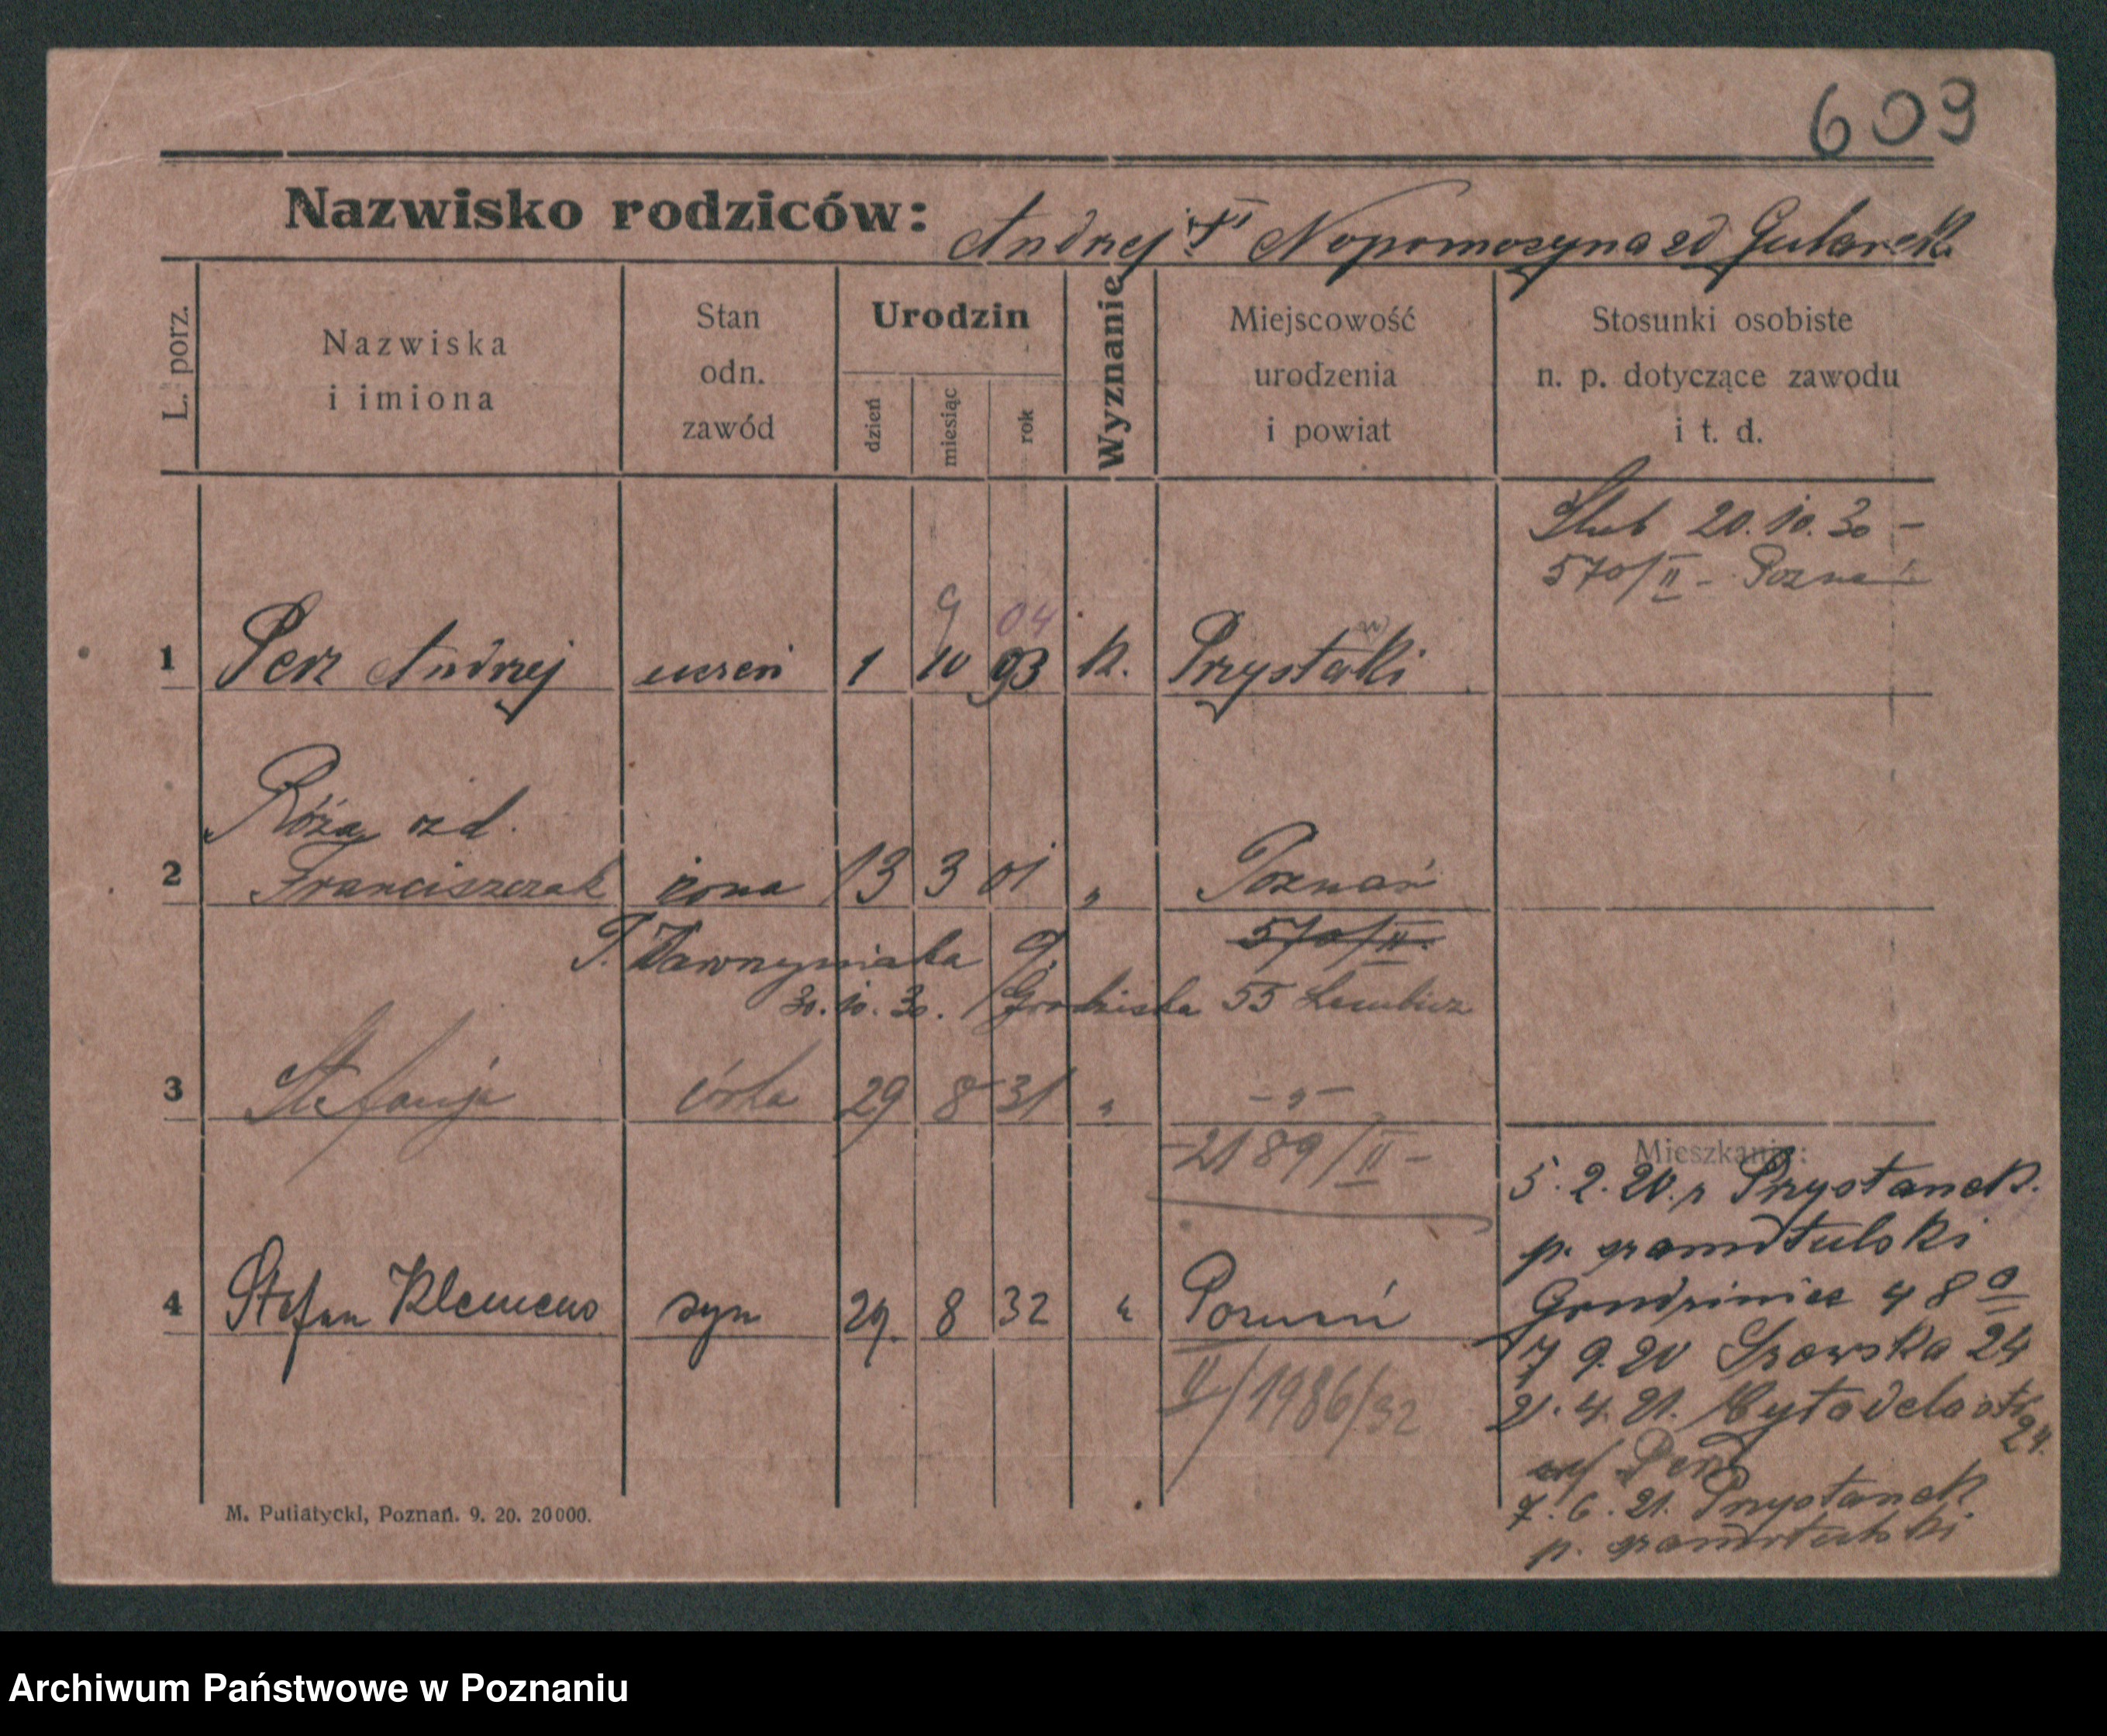 609
Nazwisko rodziców: Andrzej Nepomosyna zd Gularek
L. porz.
Nazwiska
i imiona
Stan
odn.
zawód
Urodzin
dzień
miesiąc
rok
Wyznanie
Miejscowość
urodzenia
i powiat
Stosunki osobiste
n. p. dotyczące zawodu
i t. d.
Ślub 20.10.30 –
570/II – Poznań
9 04
1 Perz Andrzej uczeń 1 10 93 k. Przystańki
Róża zd.
2 Franciszczak żona 13 3 01 " Poznań
570/II.
30.10.30. Grodziska 55
3 Stefanja córka 29 8 31 " – " –
– 2189/II –
4 Stefan Klemens syn 29. 8 32 " Poznań
II/1986/32
Mieszkanie:
5.2.20. Przystanek.
p. szamotulski
Grudzieniec 48
17 9.20 24
21.4.21. Cytadela
24.
7.6.21. Przystanek
p. szamotulski
M. Putiatycki, Poznań. 9. 20. 20000.
Archiwum Państwowe w Poznaniu